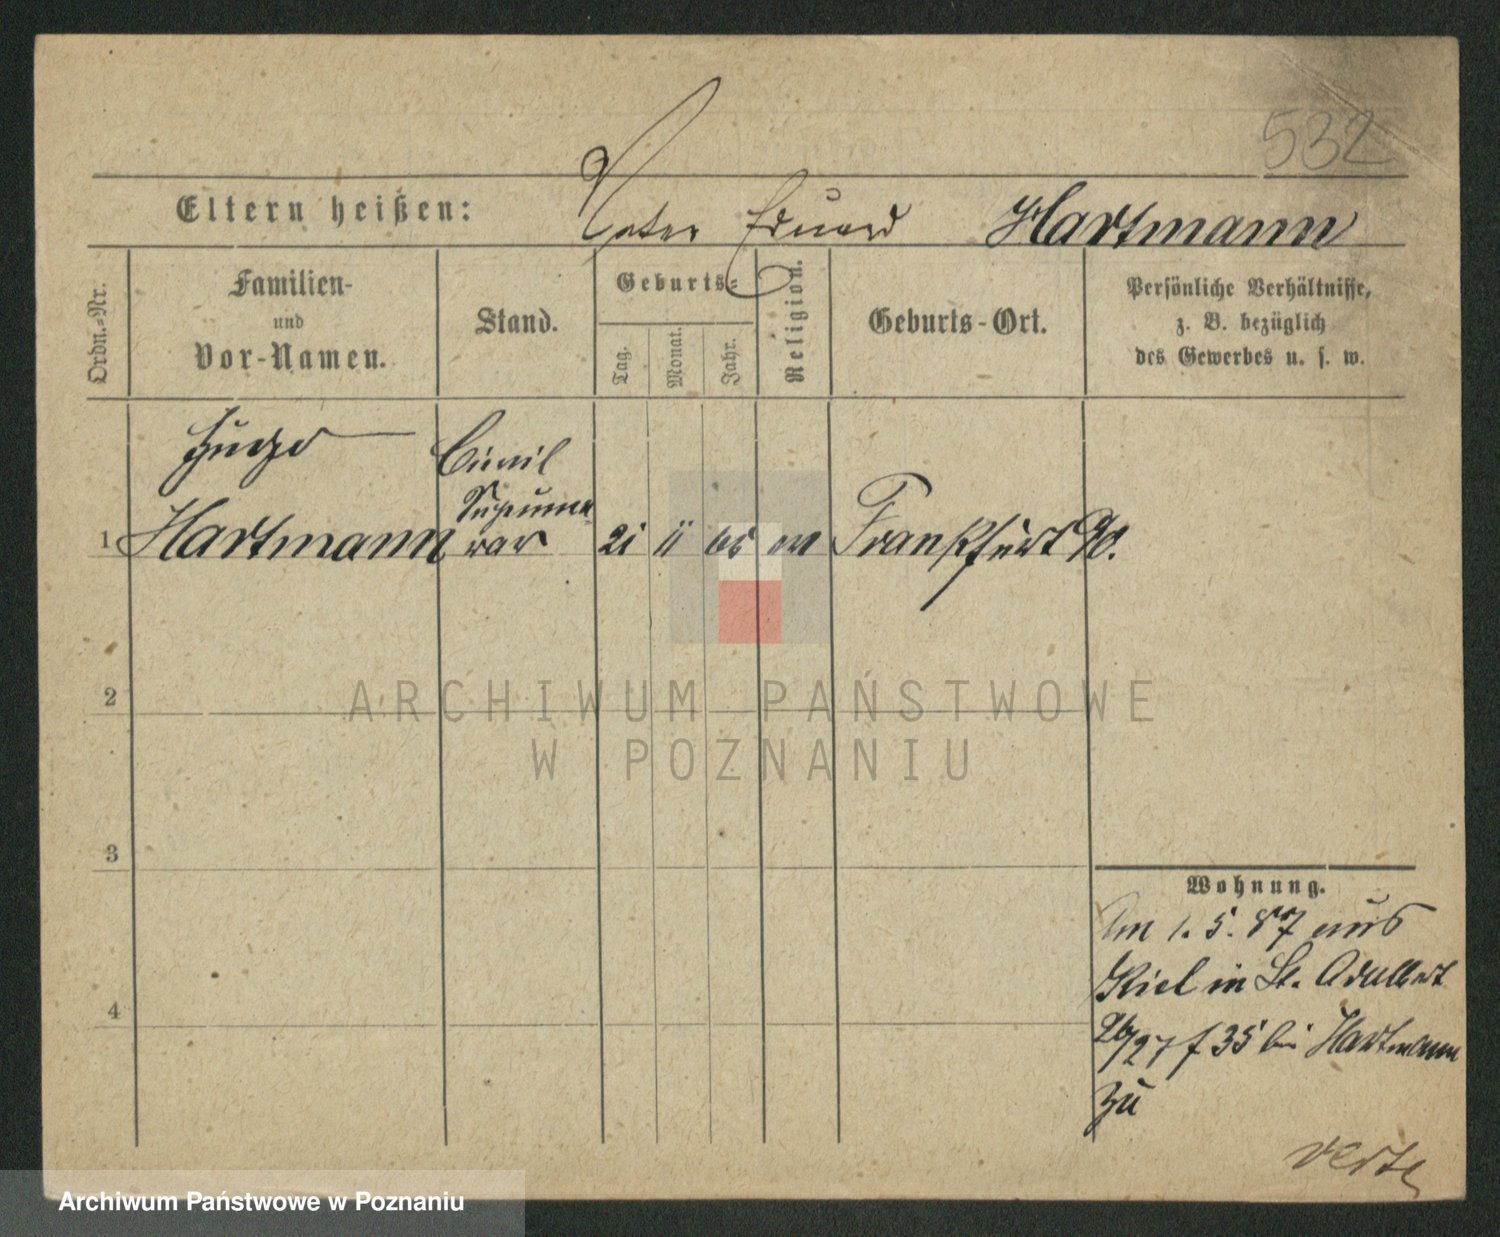 532
Eltern heißen: Vater Eduard Hartmann
Ordn.-Nr.
Familien-
und
Vor-Namen.
Stand.
Geburts-
Tag.
Monat.
Jahr.
Religion.
Geburts-Ort.
Persönliche Verhältnisse,
z. B. bezüglich
des Gewerbes u. s. w.
Hugo
Civil
Supernume
1 Hartmann rar 21 11 65 Frankfurt
2
3
4
Wohnung.
Am 1. 5. 87 aus
Kiel in St. Adalbert
26/27 f 35 bei Hartmann
zu
verte
ARCHIWUM PAŃSTWOWE
W POZNANIU
Archiwum Państwowe w Poznaniu